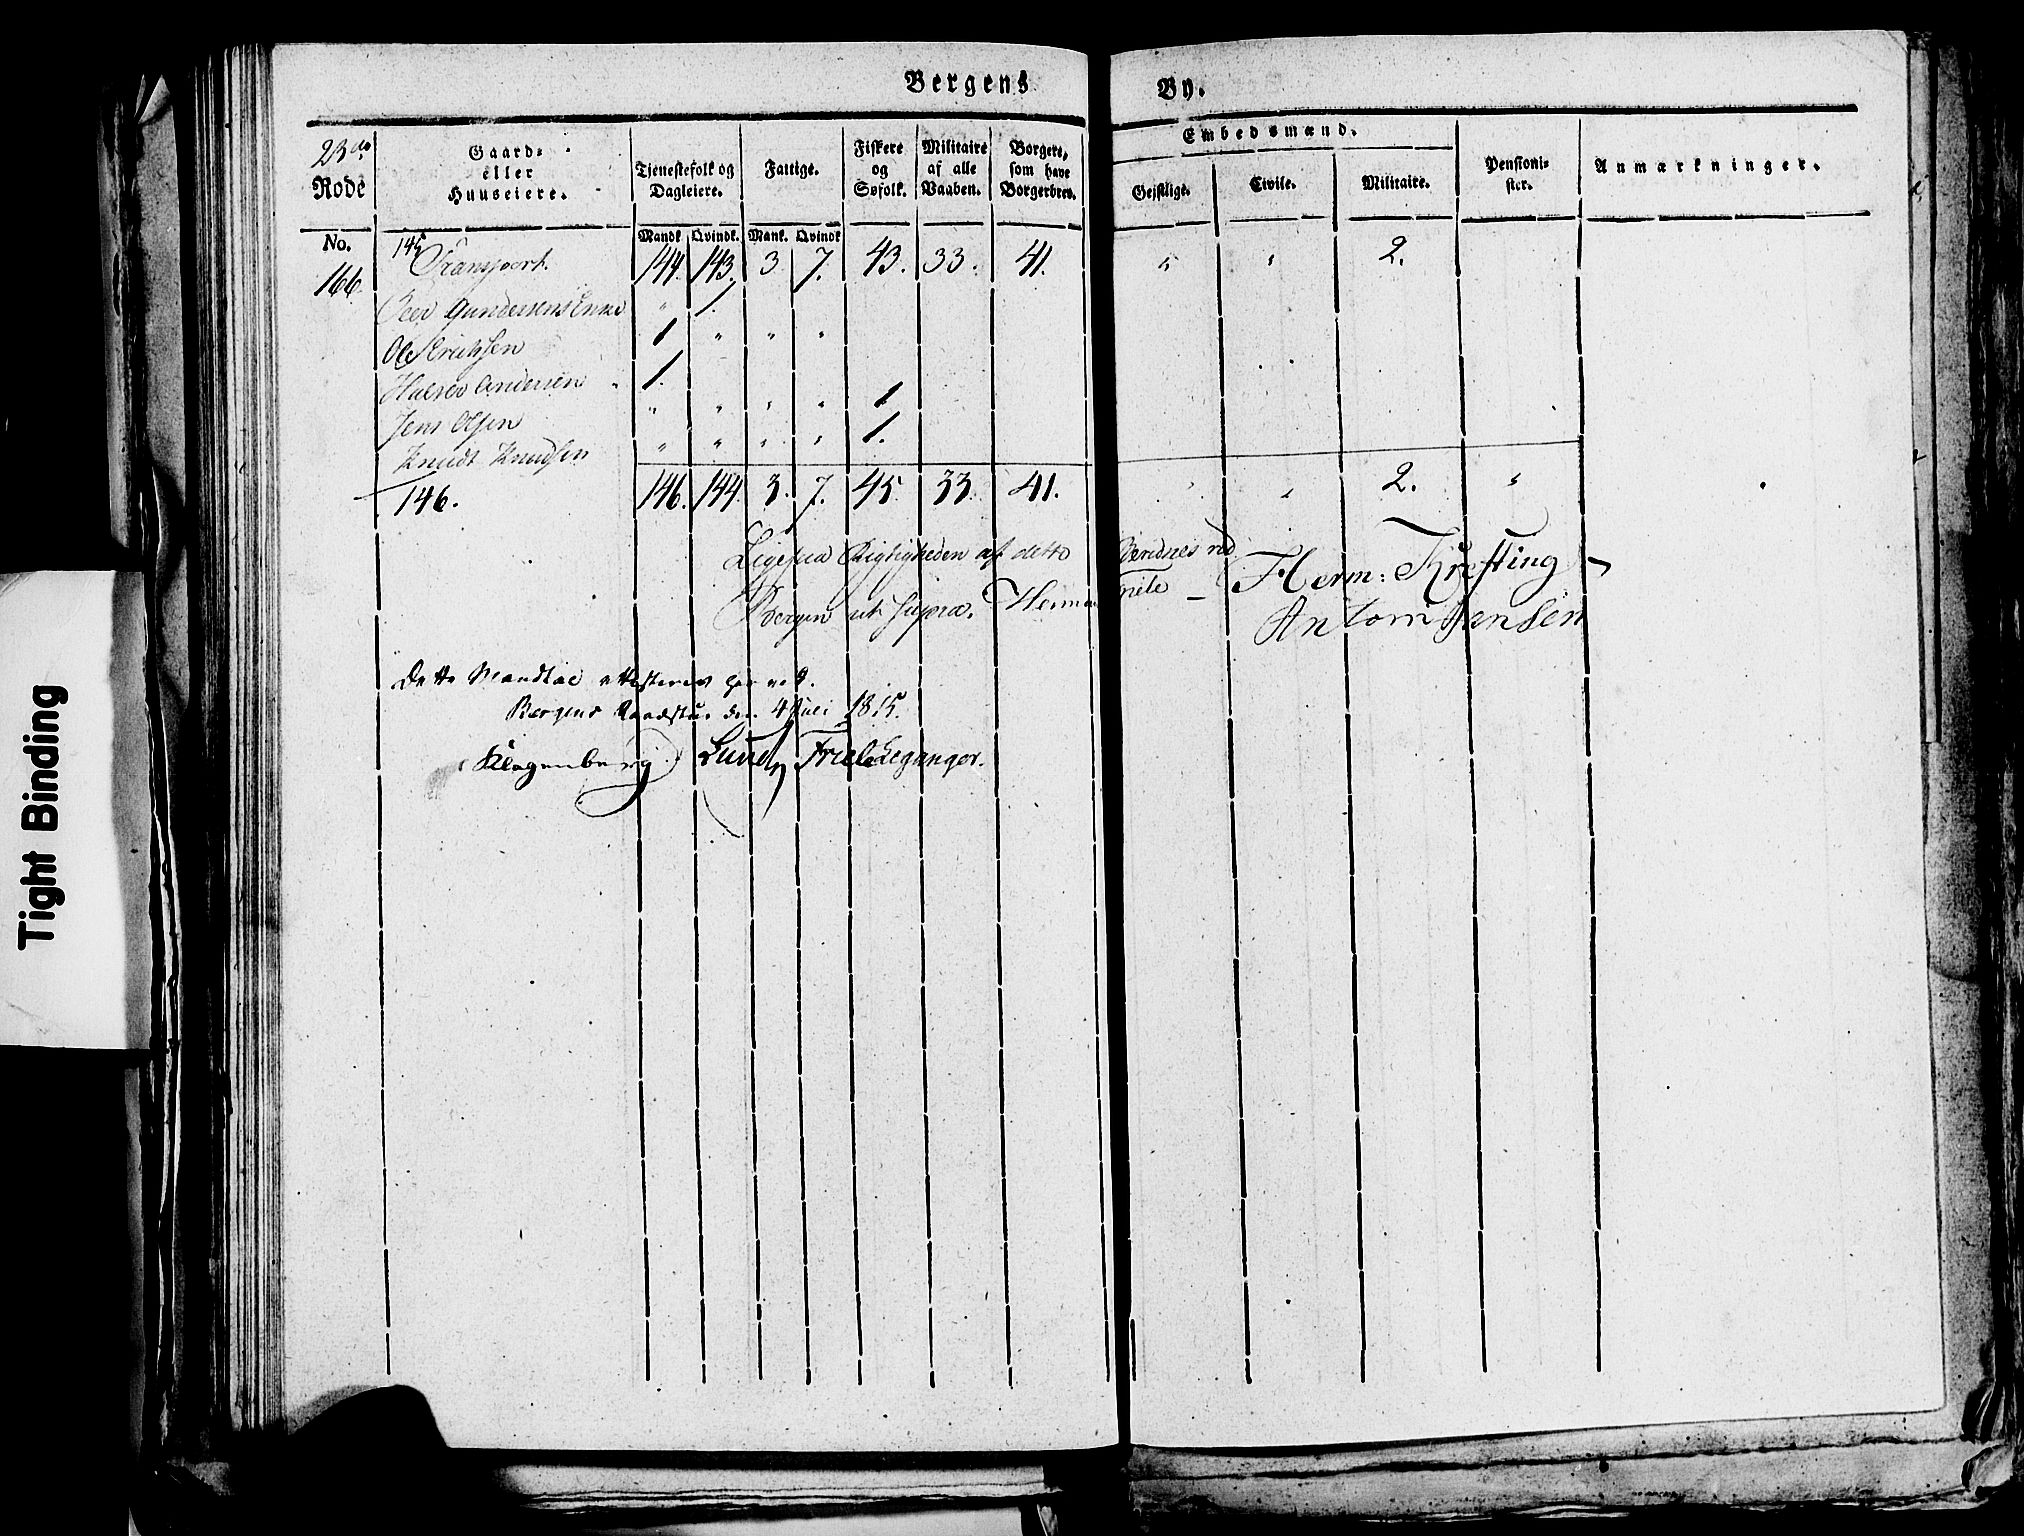 Bergens By.
23de Rode
Gaard- eller Huuseiere.
Tjenestefolk og Dagleiere.
Fattige.
Fiskere og Søfolk.
Militaire af alle Vaaben.
Borgere, som have Borgerbrev.
Embedsmænd.
Geistlige.
Civile.
Militaire.
Pensionister.
Anmærkninger.
No.
Mandk. Qvindk. Mank. Qvindk
145 Transport. 144. 143. 3. 7. 43. 33. 41. " " 2.
166.
Peer Gundersens Enke " 1.
Ole Erichsen 1 " " "
Halvor Andersen 1.
Jens Olsen " " " " 1
Knudt Knudsen " " " " 1.
146. 146. 144. 3. 7. 45. 33. 41. " " 2. "
Ligesaa Rigtigheden af dette
Bergen ut supra. Herman
Herm: Krefting
Anton Jansen
Dette Mandtal attesteres
Bergens Raadstue den 4 Juli 1815.
Klagenberg Lund Friele Leganger.
Tight Binding